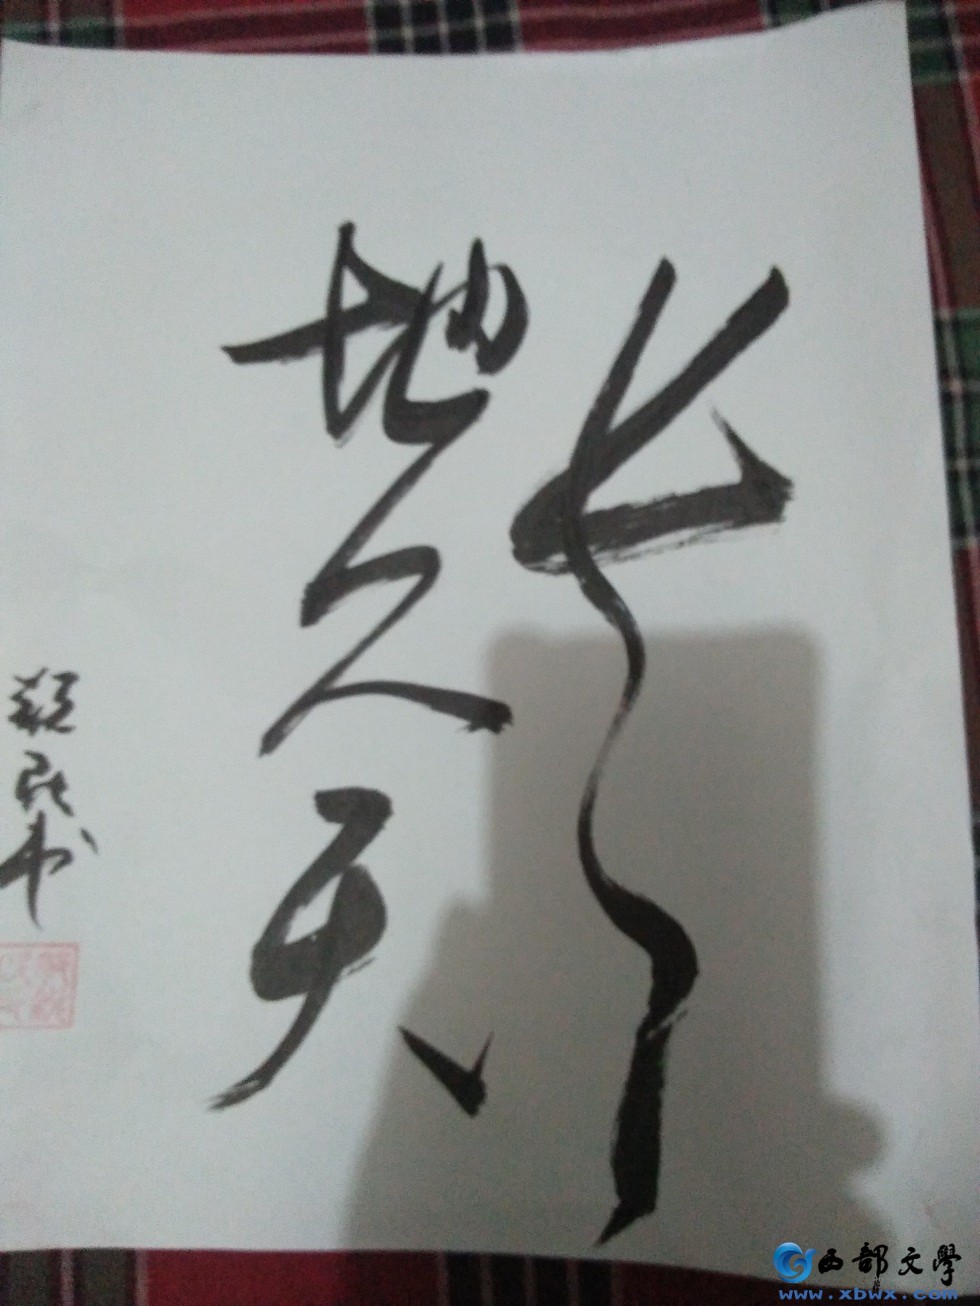 长
地久天
书
西部文學
www.xbwx.com